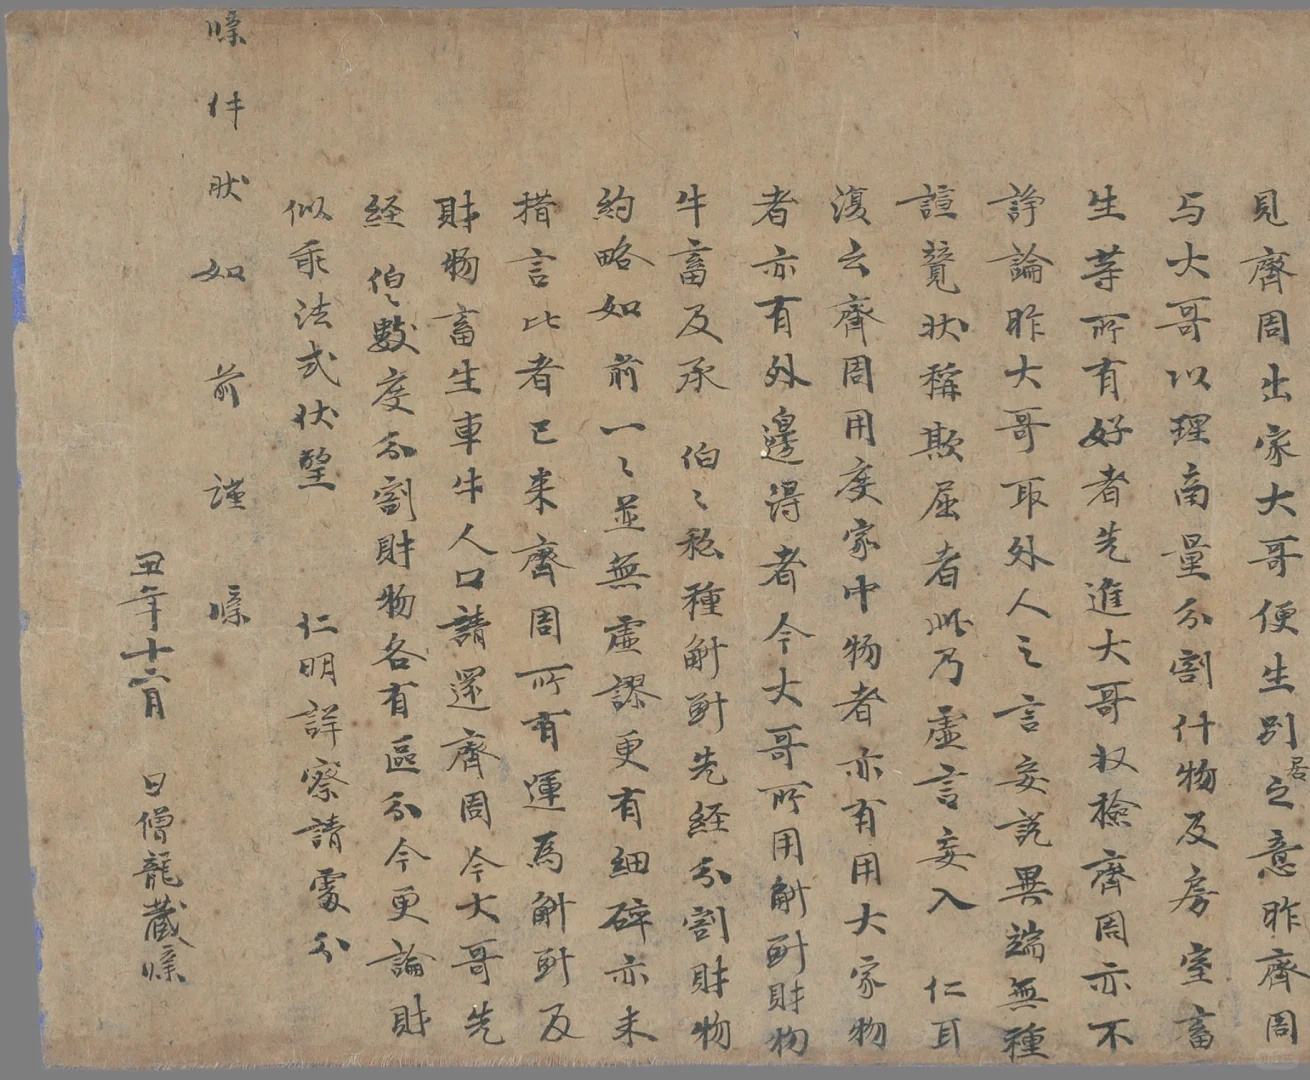 見齊周出家大哥便生別居之意昨齊周
与大哥以理商量分割什物及房室畜
生等所有好者先進大哥收檢齊周亦不
諍論昨大哥取外人之言妄說異端無種
諠競狀稱欺屈者此乃虛言妄入 仁耳
復云齊周用度家中物者亦有用大家物
者亦有外邊得者今大哥所用斛㪷財物
牛畜及承 伯〻私種斛㪷先経分割財物
約略如前一〻並無虛謬更有細碎亦未
措言比者已来齊周所有運為斛㪷及
財物畜生車牛人口請還齊周今大哥先
経 伯〻數度分割財物各有區分今更論財
似乖法式伏望 仁明詳察請處分
牒件狀如前謹牒
丑年十二月 日僧龍藏牒